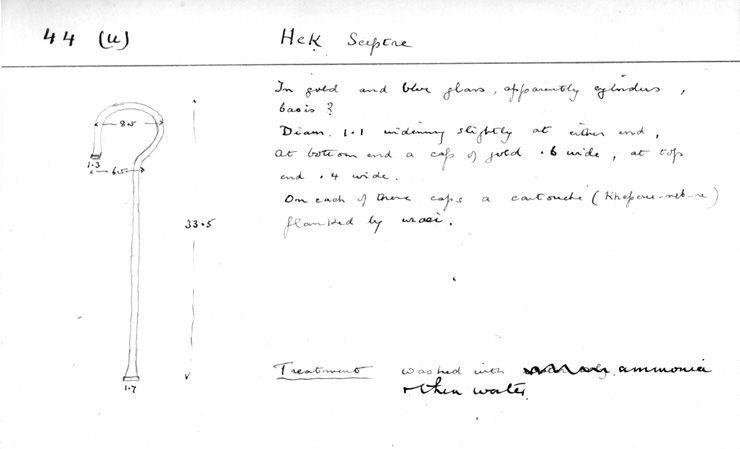 44 (u) Hek Sceptre
In gold and blue glass, apparently cylinders,
basis?
Diam. 1.1 widening slightly at either end,
at bottom end a cap of gold .6 wide, at top
end .4 wide.
On each of these caps a cartouche (Kheperu-neb-re)
flanked by uraei.
8.5
1.3
6.5
33.5
1.7
Treatment washed with ammonia
& then water.